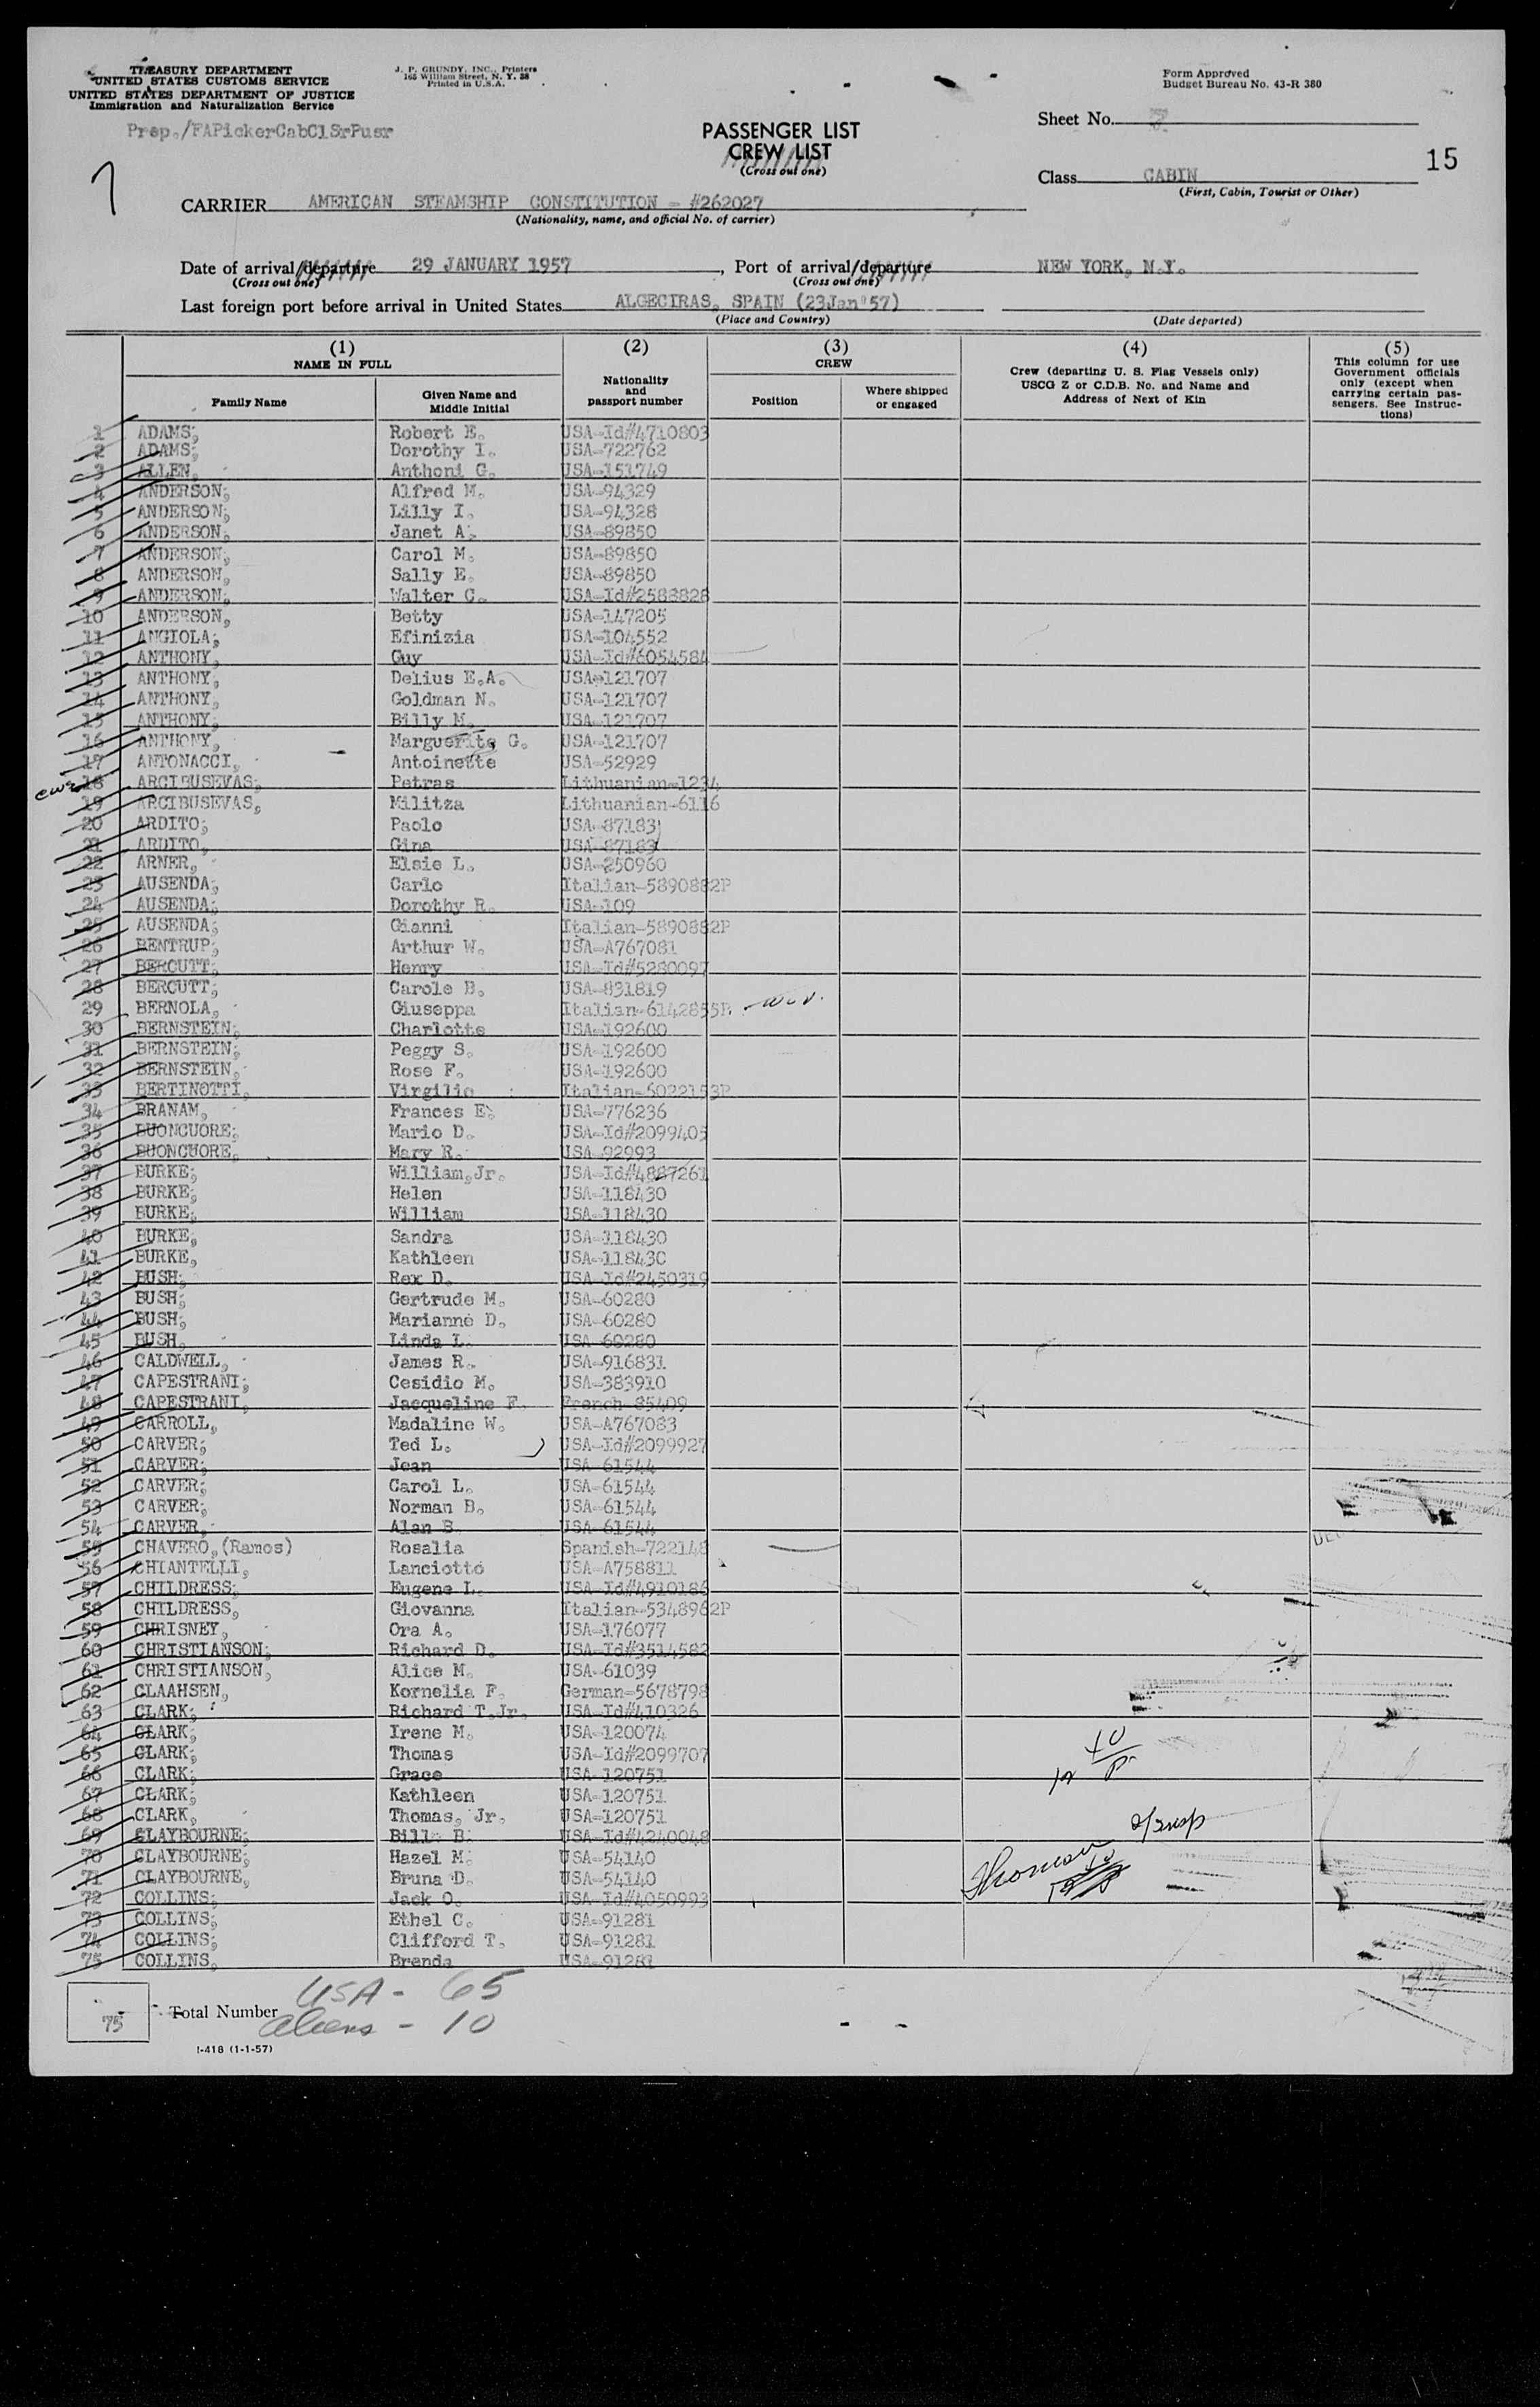 TREASURY DEPARTMENT
UNITED STATES CUSTOMS SERVICE
UNITED STATES DEPARTMENT OF JUSTICE
Immigration and Naturalization Service
Prep./FAPickerCabClSrPusr
J. P. GRUNDY, INC., Printers
165 William Street, N. Y. 38
Printed in U.S.A.
Form Approved
Budget Bureau No. 43-R 380
PASSENGER LIST
CREW LIST
(Cross out one)
Sheet No.
15
7
Class CABIN
(First, Cabin, Tourist or Other)
CARRIER AMERICAN STEAMSHIP CONSTITUTION - #262027
(Nationality, name, and official No. of carrier)
Date of arrival/departure 29 JANUARY 1957, Port of arrival/departure NEW YORK, N.Y.
(Cross out one) (Cross out one)
Last foreign port before arrival in United States ALGECIRAS, SPAIN (23Jan'57)
(Place and Country) (Date departed)
(1) NAME IN FULL
Family Name
Given Name and Middle Initial
(2) Nationality and passport number
(3) CREW
Position
Where shipped or engaged
(4) Crew (departing U. S. Flag Vessels only) USCG Z or C.D.B. No. and Name and Address of Next of Kin
(5) This column for use Government officials only (except when carrying certain passengers. See Instructions)
1 ADAMS, Robert E. USA-Id#4710803
2 ADAMS, Dorothy I. USA-722762
3 ALLEN, Anthoni G. USA-151749
4 ANDERSON, Alfred M. USA-94329
5 ANDERSON, Lilly I. USA-94328
6 ANDERSON, Janet A. USA-89850
7 ANDERSON, Carol M. USA-89850
8 ANDERSON, Sally E. USA-89850
9 ANDERSON, Walter C. USA-Id#2588828
10 ANDERSON, Betty USA-147205
11 ANGIOLA, Efinizia USA-104552
12 ANTHONY, Guy USA-Id#6054584
13 ANTHONY, Delius E.A. USA-121707
14 ANTHONY, Goldman N. USA-121707
15 ANTHONY, Billy M. USA-121707
16 ANTHONY, Marguerite G. USA-121707
17 ANTONACCI, Antoinette USA-52929
18 ARCIBUSEVAS, Petras Lithuanian-1234
19 ARCIBUSEVAS, Militza Lithuanian-6116
20 ARDITO, Paolo USA-87183
21 ARDITO, Gina USA-87183
22 ARNER, Elsie L. USA-250960
23 AUSENDA, Carlo Italian-5890882P
24 AUSENDA, Dorothy R. USA-109
25 AUSENDA, Gianni Italian-5890882P
26 BENTRUP, Arthur W. USA-A767081
27 BERCUTT, Henry USA-Id#5280097
28 BERCUTT, Carole B. USA-831819
29 BERNOLA, Giuseppa Italian-6142855P.
30 BERNSTEIN, Charlotte USA-192600
31 BERNSTEIN, Peggy S. USA-192600
32 BERNSTEIN, Rose F. USA-192600
33 BERTINOTTI, Virgilio Italian-6022153P
34 BRANAM, Frances E. USA-776236
35 BUONCUORE, Mario D. USA-Id#2099405
36 BUONCUORE, Mary R. USA-92993
37 BURKE, William, Jr. USA-Id#4887261
38 BURKE, Helen USA-118430
39 BURKE, William USA-118430
40 BURKE, Sandra USA-118430
41 BURKE, Kathleen USA-118430
42 BUSH, Rex D. USA-Id#2450319
43 BUSH, Gertrude M. USA-60280
44 BUSH, Marianne D. USA-60280
45 BUSH, Linda L. USA-60280
46 CALDWELL, James R. USA-916831
47 CAPESTRANI, Cesidio M. USA-383910
48 CAPESTRANI, Jacqueline F. French-85409
49 CARROLL, Madaline W. USA-A767083
50 CARVER, Ted L. USA-Id#2099927
51 CARVER, Jean USA-61544
52 CARVER, Carol L. USA-61544
53 CARVER, Norman B. USA-61544
54 CARVER, Alan B. USA-61544
55 CHAVERO, (Ramos) Rosalia Spanish-722148
56 CHIANTELLI, Lanciotto USA-A758811
57 CHILDRESS, Eugene L. USA-Id#4910186
58 CHILDRESS, Giovanna Italian-5348962P
59 CHRISNEY, Ora A. USA-176077
60 CHRISTIANSON, Richard D. USA-Id#3514582
61 CHRISTIANSON, Alice M. USA-61039
62 CLAAHSEN, Kornelia F. German-5678798
63 CLARK, Richard T.Jr. USA-Id#410326
64 CLARK, Irene M. USA-120074
65 CLARK, Thomas USA-Id#2099707
66 CLARK, Grace USA-120751
67 CLARK, Kathleen USA-120751
68 CLARK, Thomas, Jr. USA-120751
69 CLAYBOURNE, Bill B. USA-Id#4240048
70 CLAYBOURNE, Hazel M. USA-54140
71 CLAYBOURNE, Bruna D. USA-54140
72 COLLINS, Jack O. USA-Id#4050993
73 COLLINS, Ethel C. USA-91281
74 COLLINS, Clifford T. USA-91281
75 COLLINS, Brenda USA-91281
75 Total Number
USA - 65
Aliens - 10
I-418 (1-1-57)